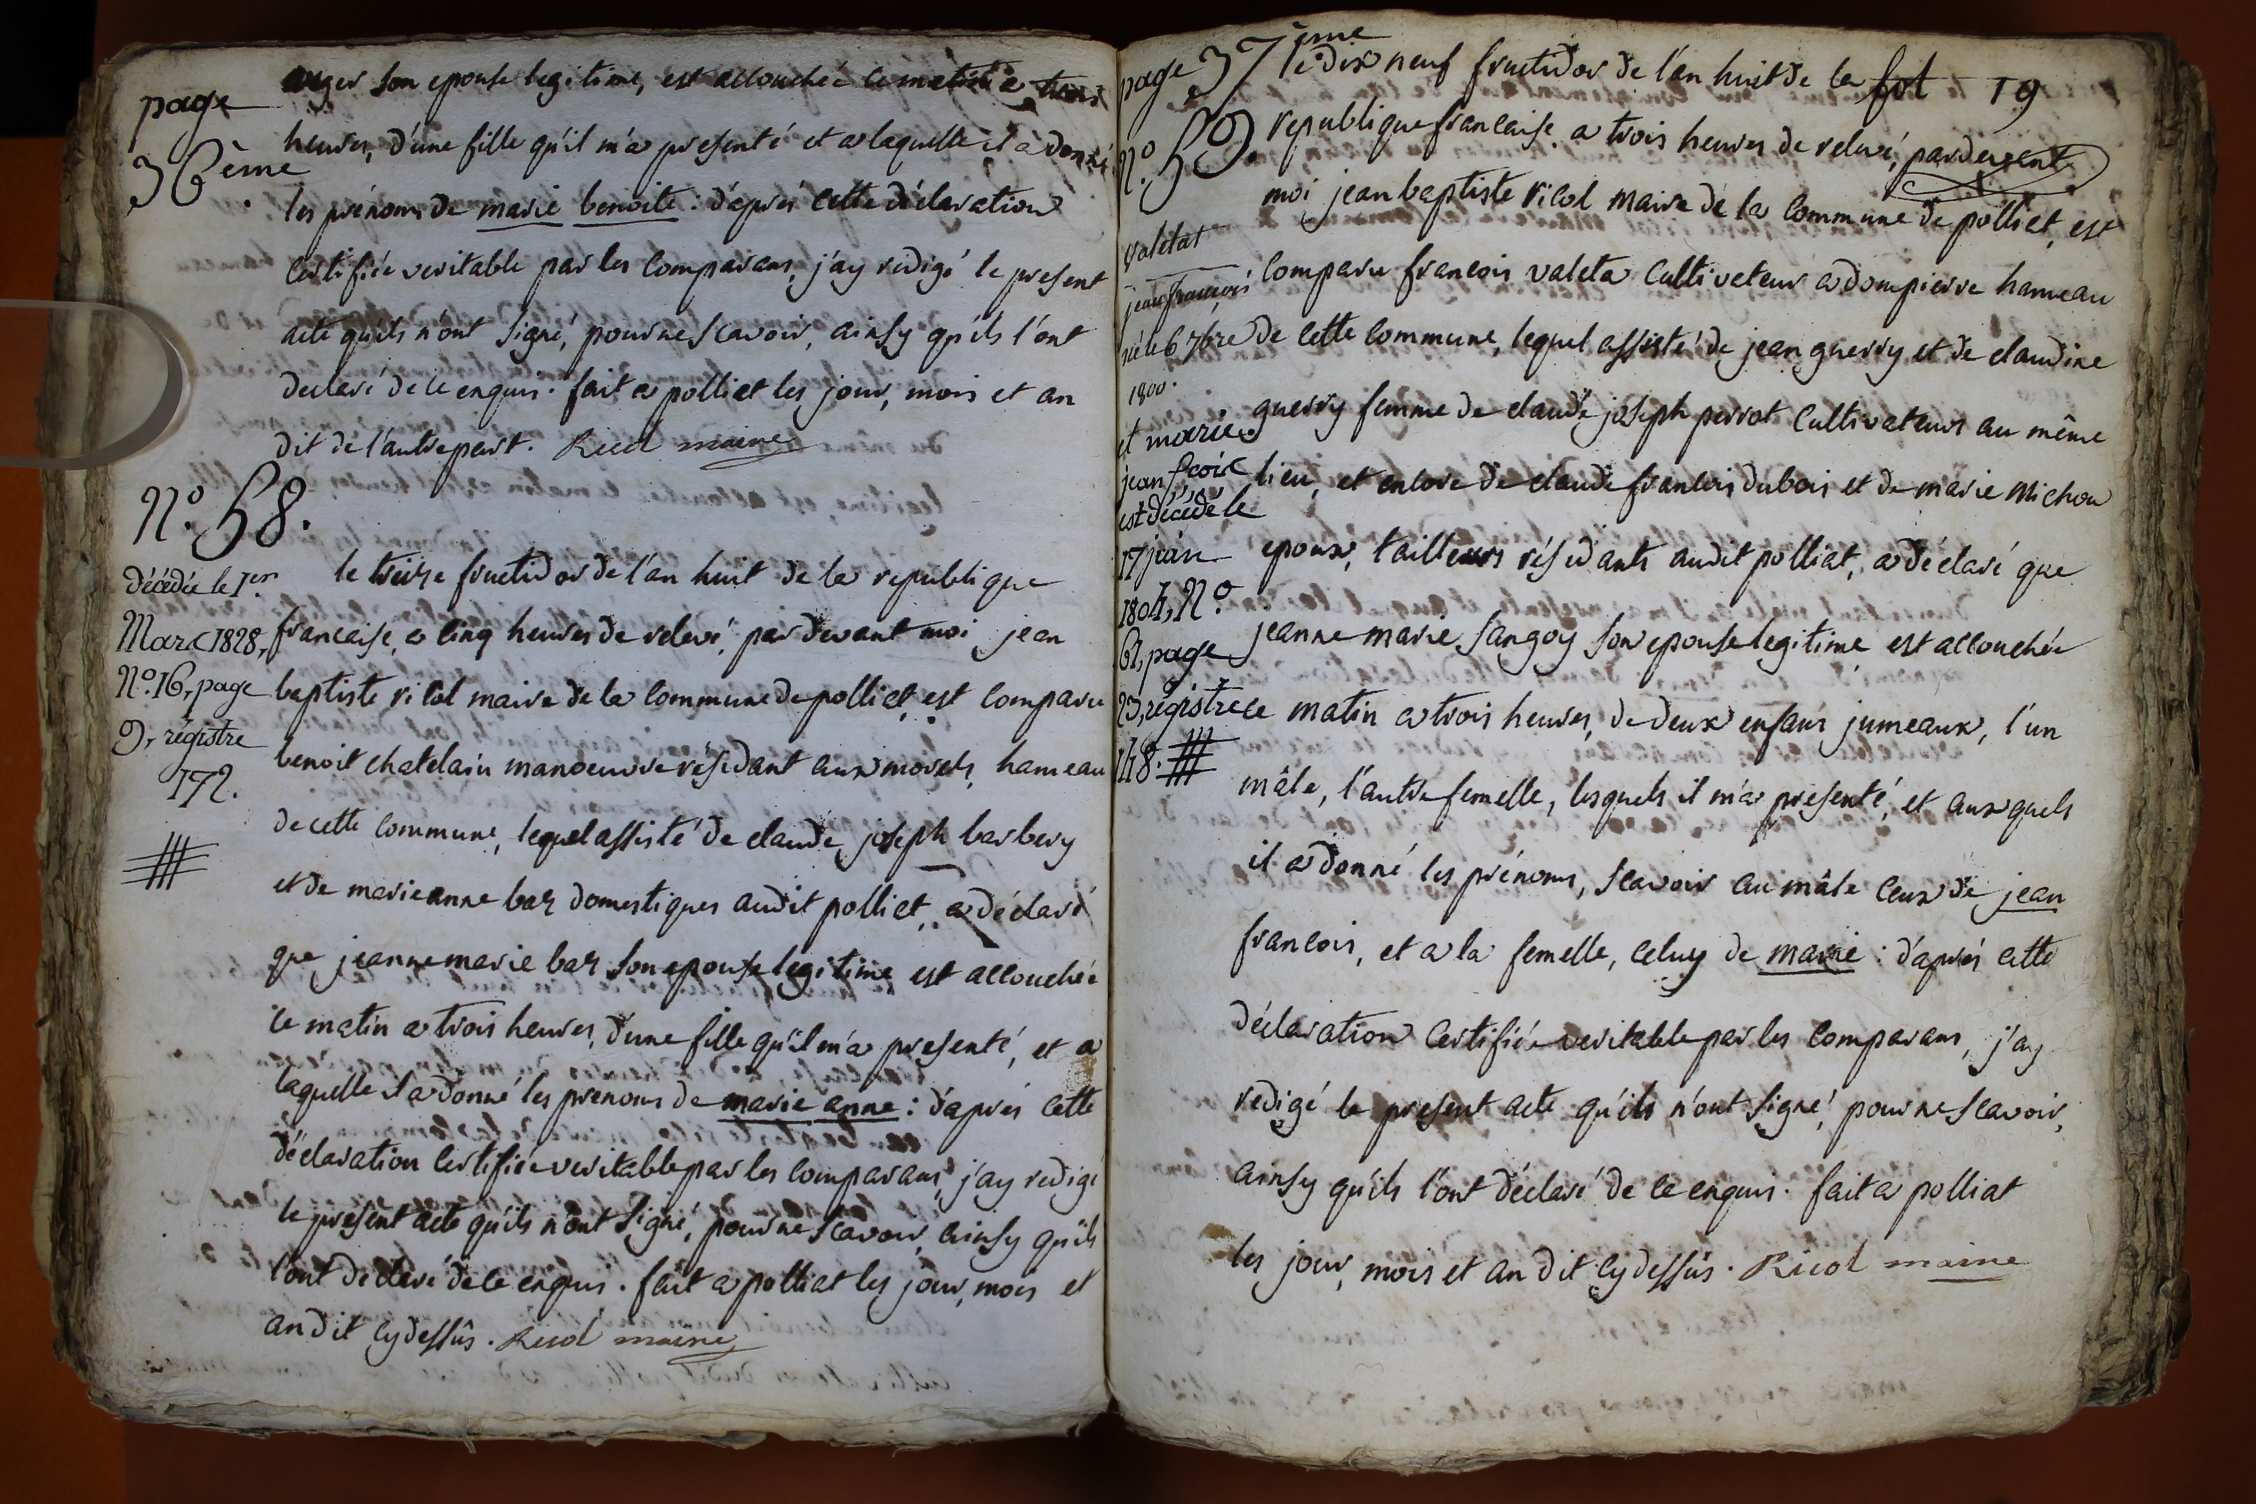 page
36ème
auger son epouse legitime, est accouchée ce matin a trois
heures, d'une fille qu'il m'a presenté et a laquelle il a donné
les prénoms de marie benoite : d'aprés cette déclaration
certifiée veritable par les comparans, j'ay redigé le present
acte qu'ils n'ont signé, pour ne scavoir, ainsy qu'ils l'ont
declaré de ce enquis. fait a polliat les jour, mois et an
dit de l'autre part. Ricol maire
N.º 58.
décédée le 1er.
Mars 1828,
Nº. 16, page
9, régistre
172.
le treize fructidor de l'an huit de la republique
francaise, a cinq heures de relevé, par devant moi jean
baptiste ricol maire de la commune de polliat, est comparu
benoit chatelain manoeuvre résidant aux morets, hameau
de cette commune, lequel assisté de claude joseph barbery
et de marieanne baz domestiques audit polliat, a déclaré
que jeanne marie baz son epouse legitime est accouchée
ce matin a trois heures, d'une fille qu'il m'a presenté, et a
laquelle il a donné les prenoms de marie anne : d'aprés cette
déclaration certifiée veritable par les comparans, j'ay redigé
le present acte qu'ils n'ont signé, pour ne scavoir, ainsy qu'ils
l'ont déclaré de ce enquis. fait a polliat les jour, mois et
an dit cy dessûs. Ricol maire
page 37ème
fol 19
N.º 59.
valetat
jean françois
né le 6 7bre
1800.
et marie.
jean fçois
est décédé le
17 juin
1804, N.º
61, page
23, régistre
148.
le dix neuf fructidor de l'an huit de la
republique francaise a trois heures de relevé, pardevent
moi jean baptiste ricol maire de la commune de polliat, est
comparu francois valeta cultiveteur a dompierre hameau
de cette commune, lequel assisté de jean guerry et de claudine
guerry femme de claude joseph perrot cultivateurs au même
lieu, et encore de claude francois dubois et de marie michon
epoux, tailleurs résidants audit polliat, a déclaré que
jeanne marie sangoy son epouse legitime est accouchée
ce matin a trois heures, de deux enfans jumeaux, l'un
mâle, l'autre femelle, lesquels il m'a presenté, et auxquels
il a donné les prénoms, scavoir au mâle ceux de jean
francois, et a la femelle, celuy de marie : d'aprés cette
déclaration certifiée veritable par les comparans, j'ay
redigé le present acte qu'ils n'ont signé, pour ne scavoir,
ainsy qu'ils l'ont déclaré de ce enquis. fait a polliat
les jour, mois et an dit cy dessûs. Ricol maire